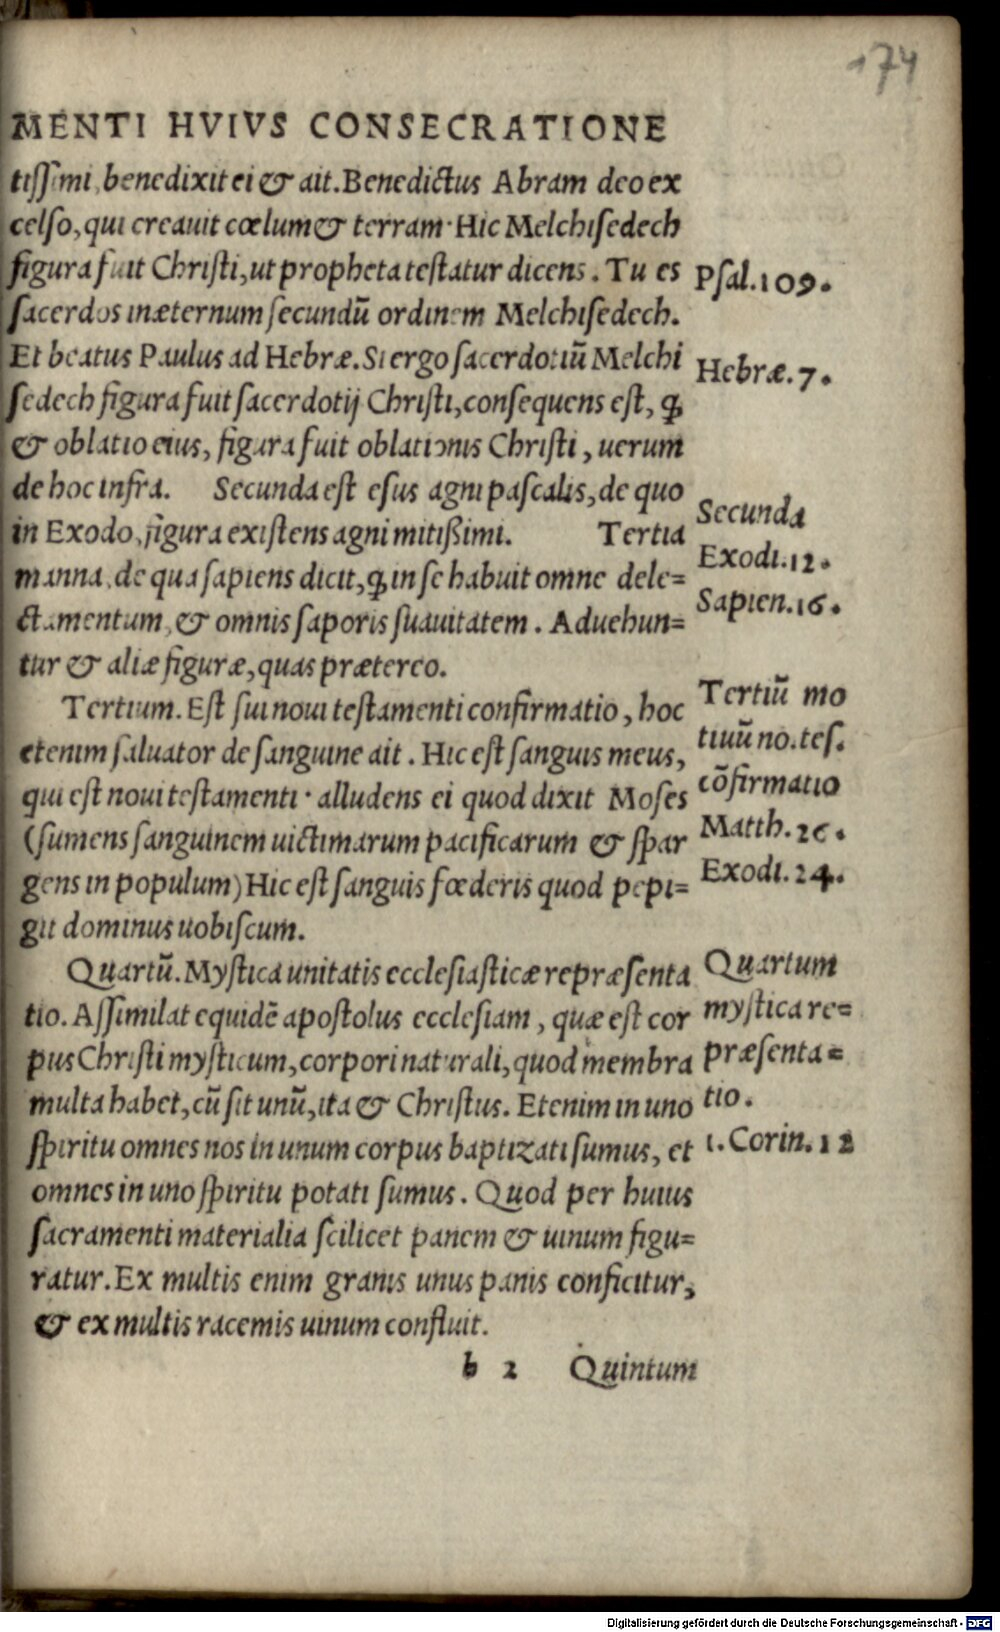 174
MENTI HVIVS CONSECRATIONE
tissimi, benedixit ei & ait. Benedictus Abram deo ex
celso, qui creauit cœlum & terram· Hic Melchisedech
figura fuit Christi, ut propheta testatur dicens. Tu es
Psal.109.
sacerdos inæternum secundũ ordinem Melchisedech.
Et beatus Paulus ad Hebræ. Si ergo sacerdotiũ Melchi
Hebræ.7.
sedech figura fuit sacerdotij Christi, consequens est, ꝙ
& oblatio eius, figura fuit oblationis Christi, uerum
de hoc infra. Secunda est esus agni pascalis, de quo
Secunda
in Exodo, figura existens agni mitißimi. Tertia
Exodi.12.
manna, de qua sapiens dicit, ꝙ in se habuit omne dele=
Sapien.16.
ctamentum, & omnis saporis suauitatem. Aduehun=
tur & aliæ figuræ, quas prætereo.
Tertium. Est sui noui testamenti confirmatio, hoc
Tertiũ mo
etenim saluator de sanguine ait. Hic est sanguis meus,
tiuũ no.tes.
qui est noui testamenti· alludens ei quod dixit Moses
cõfirmatio
(sumens sanguinem uictimarum pacificarum & spar
Matth.26.
gens in populum) Hic est sanguis fœderis quod pepi=
Exodi.24.
git dominus uobiscum.
Quartũ. Mystica unitatis ecclesiasticæ repræsenta
Quartum
tio. Assimilat equidẽ apostolus ecclesiam, quæ est cor
mystica re=
pus Christi mysticum, corpori naturali, quod membra
præsenta=
multa habet, cũ sit unũ, ita & Christus. Etenim in uno
tio.
spiritu omnes nos in unum corpus baptizati sumus, et
1.Corin.12
omnes in uno spiritu potati sumus. Quod per huius
sacramenti materialia scilicet panem & uinum figu=
ratur. Ex multis enim granis unus panis conficitur,
& ex multis racemis uinum confluit.
b 2 Quintum
Digitalisierung gefördert durch die Deutsche Forschungsgemeinschaft - DFG